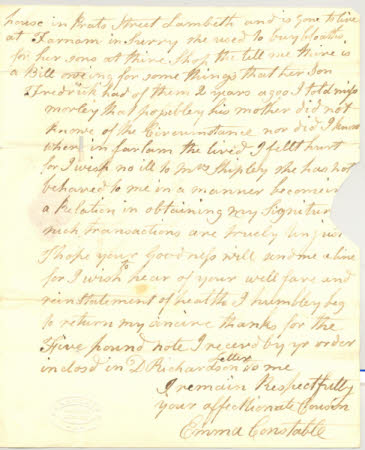 house in Prats Street Lambeth and is gone to live
at Farnam in Surry she used to buy Cloaths
for her sons at thire Shop the tell me thire is
a Bill oweing for some things that her Son
Fredrick had of them 2 years agoo I told miss
morley that popibley his mother did not
knowe of the Circumstance nor did I know
where in farlam the lived I fellt hurt
for I wish no ill to Mrs Shipley she has not
behaved to me in a manner becomein
a Relation in obtaining my Signitur
such transactions are truely Unjus
I hope your Goodness will send me a line
for I wish to hear of your well fare and
reinstatement of health I humbley beg
to return my sincire thanks for the
Five pound note I receved by yr order
inclosd in D Richardson letter to me
I remain Respectfully
your affectionate Cousin
Emma Constable